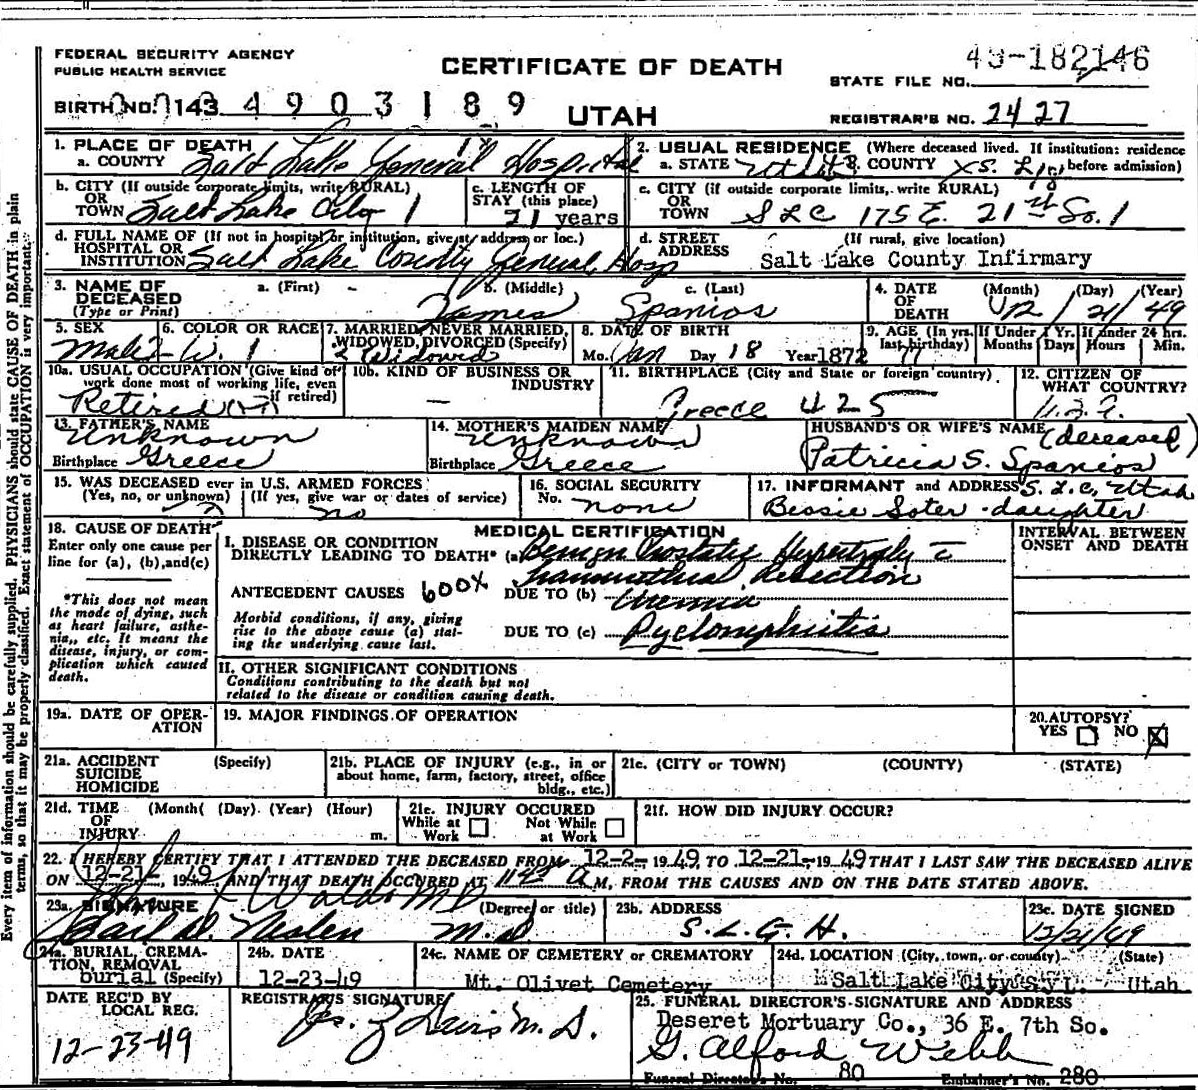 FEDERAL SECURITY AGENCY
PUBLIC HEALTH SERVICE
CERTIFICATE OF DEATH
49-182146
STATE FILE NO.
BIRTH NO. 143 4903189
UTAH
REGISTRAR'S NO. 2427
1. PLACE OF DEATH
a. COUNTY Salt Lake General Hospital
2. USUAL RESIDENCE (Where deceased lived. If institution: residence before admission)
a. STATE Utah B. COUNTY S. L.
b. CITY (If outside corporate limits, write RURAL) OR TOWN Salt Lake City 1
c. LENGTH OF STAY (this place) 21 years
c. CITY (if outside corporate limits, write RURAL) OR TOWN SLC 175 E. 21st So. 1
d. FULL NAME OF (If not in hospital or institution, give st. address or loc.) HOSPITAL OR INSTITUTION Salt Lake County General Hosp
d. STREET ADDRESS (If rural, give location) Salt Lake County Infirmary
3. NAME OF DECEASED (Type or Print) a. (First) b. (Middle) c. (Last)
James Spanios
4. DATE OF DEATH (Month) (Day) (Year) 12/21/49
5. SEX Male
6. COLOR OR RACE W. 1
7. MARRIED, NEVER MARRIED, WIDOWED, DIVORCED (Specify) 2 Widowed
8. DATE OF BIRTH Mo. Jan Day 18 Year 1872
9. AGE (In yrs. last birthday) 77
If Under 1 Yr. Months Days
If under 24 hrs. Hours Min.
10a. USUAL OCCUPATION (Give kind of work done most of working life, even if retired) Retired
10b. KIND OF BUSINESS OR INDUSTRY —
11. BIRTHPLACE (City and State or foreign country) Greece 425
12. CITIZEN OF WHAT COUNTRY? U.S.A.
13. FATHER'S NAME Unknown
Birthplace Greece
14. MOTHER'S MAIDEN NAME Unknown
Birthplace Greece
HUSBAND'S OR WIFE'S NAME (deceased)
Patricia S. Spanios
15. WAS DECEASED ever in U.S. ARMED FORCES
(Yes, no, or unknown) (If yes, give war or dates of service)
no
16. SOCIAL SECURITY No. none
17. INFORMANT and ADDRESS S.L.C, Utah
Bessie Soter - daughter
18. CAUSE OF DEATH
Enter only one cause per line for (a), (b), and (c)
*This does not mean the mode of dying, such as heart failure, asthenia, etc. It means the disease, injury, or complication which caused death.
MEDICAL CERTIFICATION
INTERVAL BETWEEN ONSET AND DEATH
I. DISEASE OR CONDITION DIRECTLY LEADING TO DEATH* (a) Benign Prostatic Hypertrophy c
Transurethral Resection
ANTECEDENT CAUSES 600X DUE TO (b) Uremia
Morbid conditions, if any, giving rise to the above cause (a) stating the underlying cause last.
DUE TO (c) Pyelonephritis
II. OTHER SIGNIFICANT CONDITIONS
Conditions contributing to the death but not related to the disease or condition causing death.
19a. DATE OF OPERATION
19. MAJOR FINDINGS OF OPERATION
20. AUTOPSY? YES NO X
21a. ACCIDENT SUICIDE HOMICIDE (Specify)
21b. PLACE OF INJURY (e.g., in or about home, farm, factory, street, office bldg., etc.)
21c. (CITY or TOWN) (COUNTY) (STATE)
21d. TIME OF INJURY (Month) (Day) (Year) (Hour) m.
21e. INJURY OCCURED While at Work Not While at Work
21f. HOW DID INJURY OCCUR?
22. I HEREBY CERTIFY THAT I ATTENDED THE DECEASED FROM 12-2- 1949 TO 12-21- 1949 THAT I LAST SAW THE DECEASED ALIVE
ON 12-21- 1949 AND THAT DEATH OCCURED AT A M, FROM THE CAUSES AND ON THE DATE STATED ABOVE.
23a. SIGNATURE (Degree or title) M.D.
23b. ADDRESS S.L.G.H.
23c. DATE SIGNED 12/21/49
24a. BURIAL, CREMATION, REMOVAL (Specify) burial
24b. DATE 12-23-49
24c. NAME OF CEMETERY or CREMATORY Mt. Olivet Cemetery
24d. LOCATION (City, town, or county) (State) Salt Lake City S.L. Utah
DATE REC'D BY LOCAL REG. 12-23-49
REGISTRAR'S SIGNATURE
25. FUNERAL DIRECTOR'S SIGNATURE AND ADDRESS
Deseret Mortuary Co., 36 E. 7th So.
G. Alford Webb
Funeral Director's No. 80 Embalmer's No. 280
Every item of information should be carefully supplied. PHYSICIANS should state CAUSE OF DEATH in plain
terms, so that it may be properly classified. Exact statement of OCCUPATION is very important.